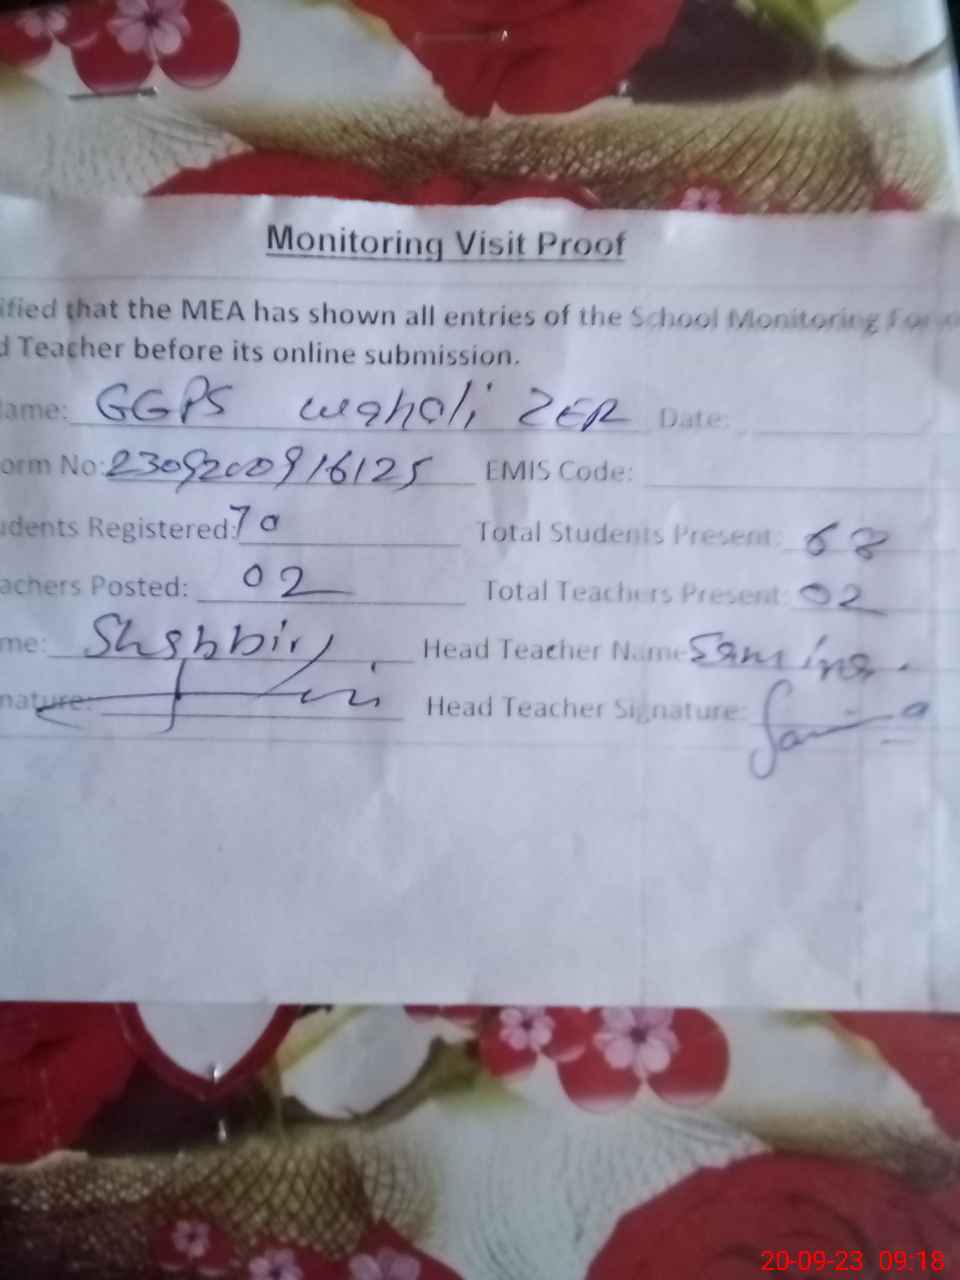 Monitoring Visit Proof
ified that the MEA has shown all entries of the School Monitoring Form
d Teacher before its online submission.
ame: GGPS wghali ZER Date:
orm No: 2309200916125 EMIS Code:
udents Registered: 70 Total Students Present: 68
achers Posted: 02 Total Teachers Present: 02
me: Shabbir Head Teacher Name Samina.
nature: Head Teacher Signature: Samina
20-09-23 09:18